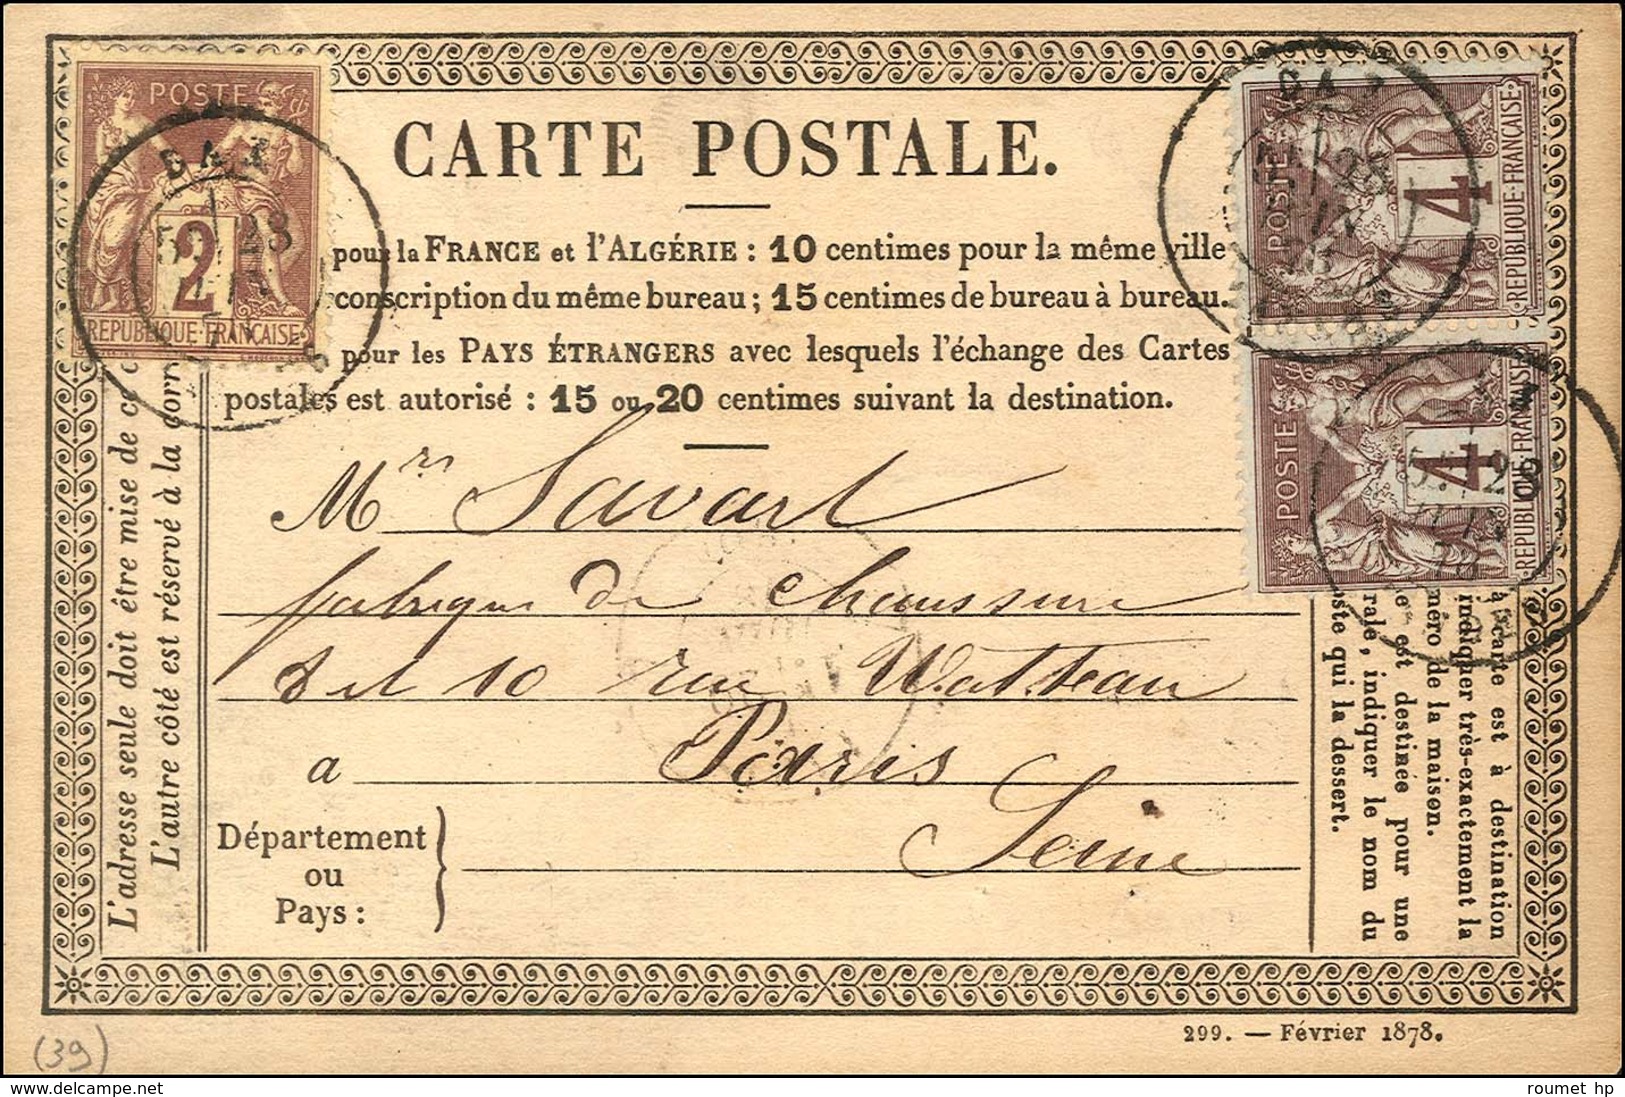 POSTE
2
REPUBLIQUE·FRANÇAISE
DAX
28
CARTE POSTALE.
POSTE
4
REPUBLIQUE·FRANÇAISE
POSTE
4
REPUBLIQUE·FRANÇAISE
28
78
pour la FRANCE et l'ALGÉRIE : 10 centimes pour la même ville
conscription du même bureau ; 15 centimes de bureau à bureau.
pour les PAYS ÉTRANGERS avec lesquels l'échange des Cartes
postales est autorisé : 15 ou 20 centimes suivant la destination.
Mrs Savart
fabrique de chaussure
8 et 10 rue Watteau
a Paris
Seine
Département
ou
Pays :
L'adresse seule doit être mise de ce
L'autre côté est réservé à la corr
carte est à destination
indiquer très-exactement la
méro de la maison.
e est destinée pour une
rale, indiquer le nom du
ste qui la dessert.
299. — Février 1878.
(39)
delcampe.net
roumet hp